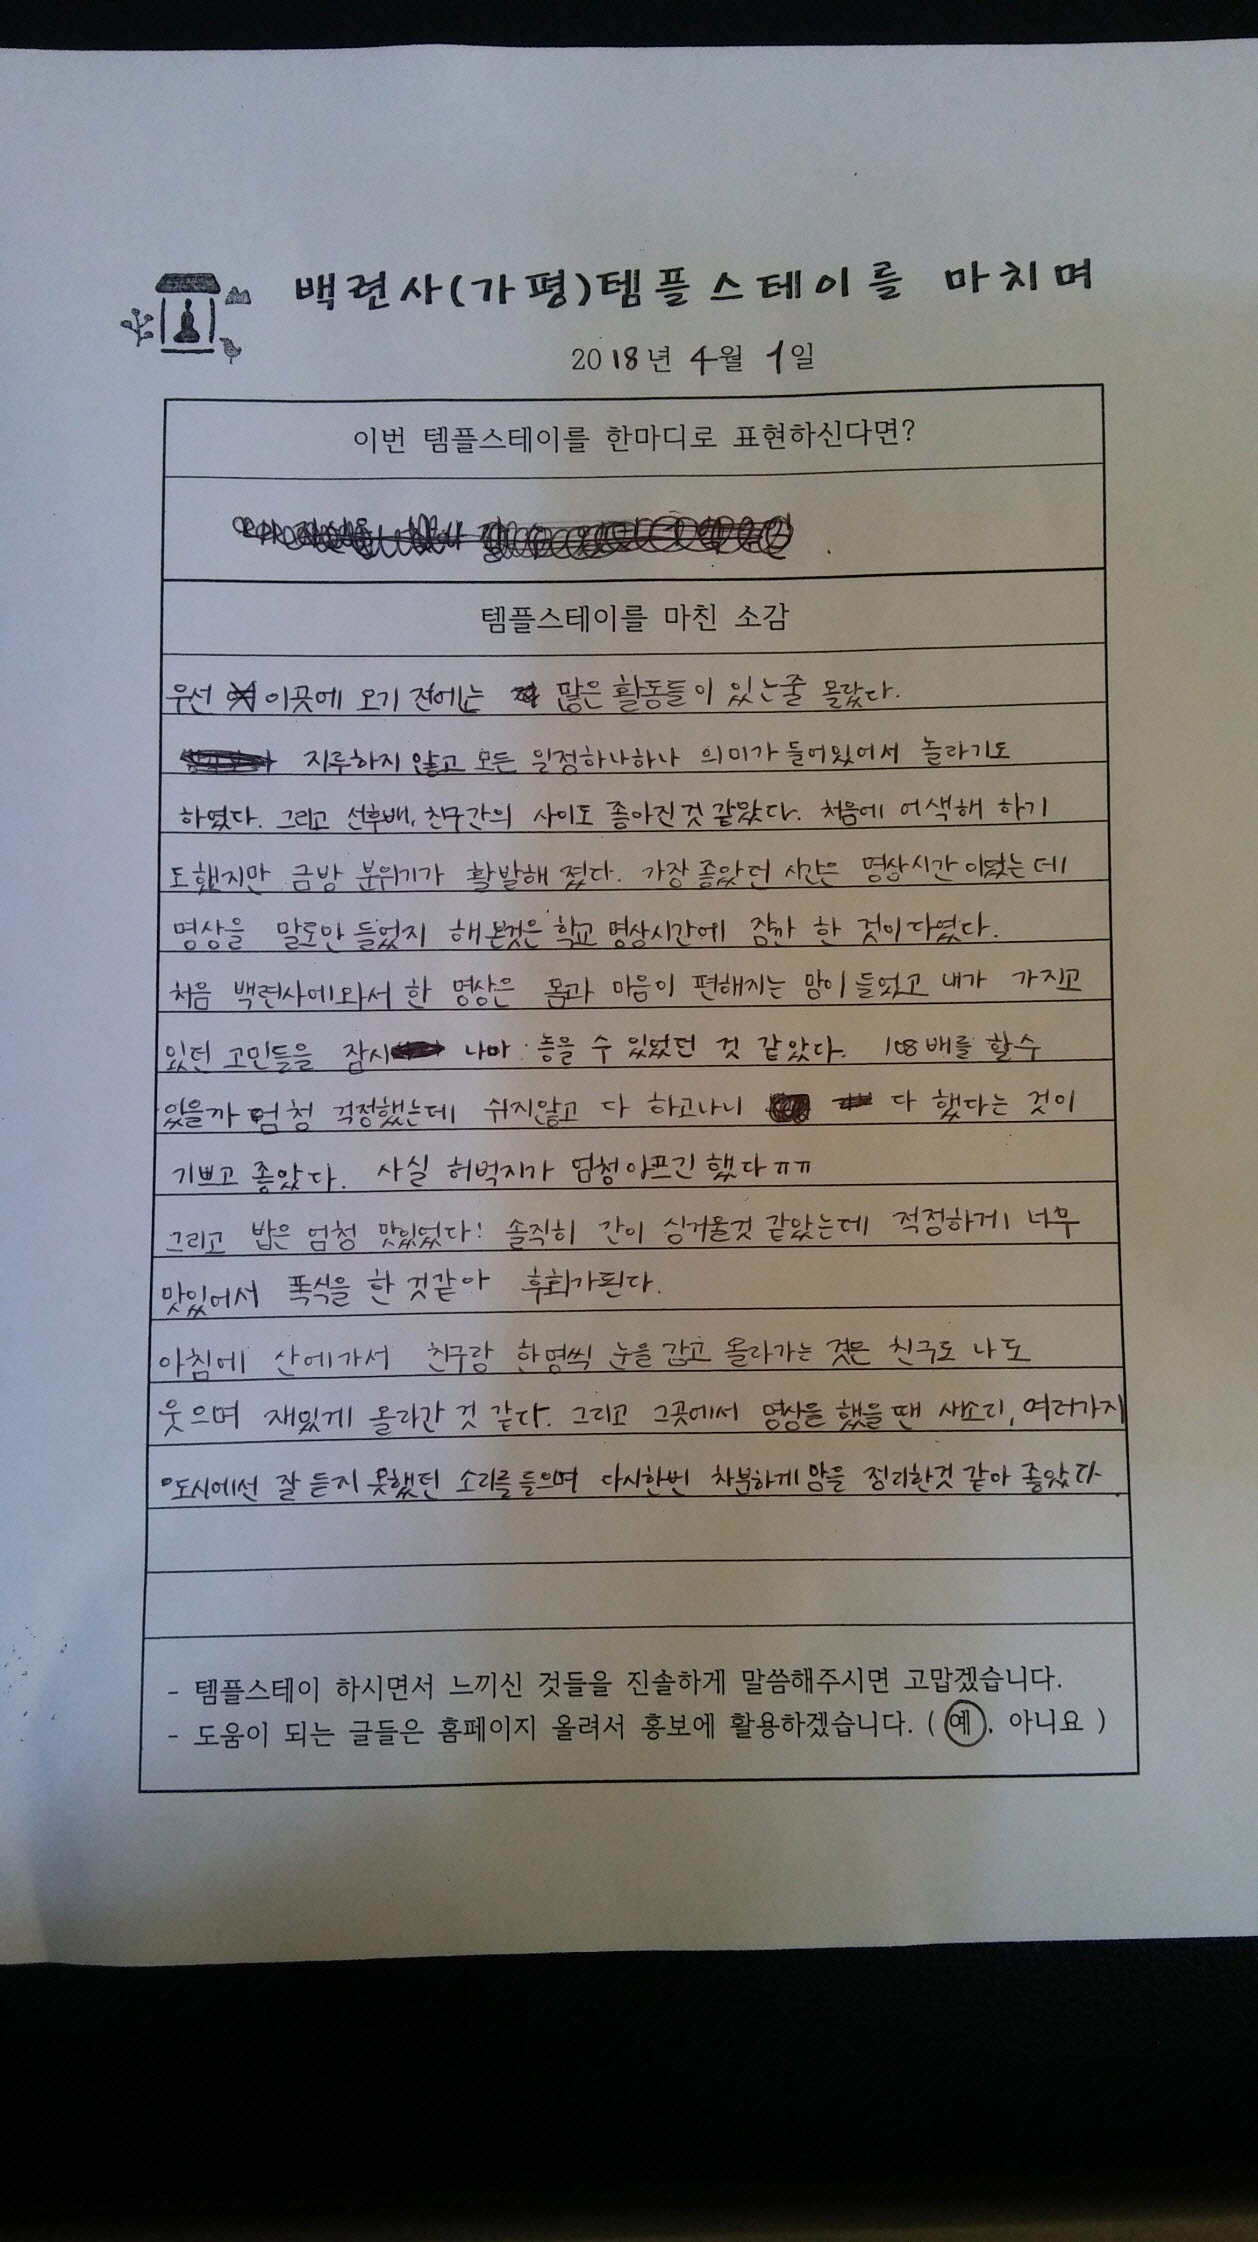 백련사(가평)템플스테이를 마치며
2018년 4월 1일
이번 템플스테이를 한마디로 표현하신다면?
템플스테이를 마친 소감
우선 이곳에 오기 전에는 많은 활동들이 있는줄 몰랐다.
지루하지 않고 모든 일정하나하나 의미가 들어있어서 놀라기도
하였다. 그리고 선후배, 친구간의 사이도 좋아진것 같았다. 처음에 어색해 하기
도했지만 금방 분위기가 활발해 졌다. 가장 좋았던 시간은 명상시간 이었는데
명상을 말로만 들었지 해본것은 학교 명상시간에 잠깐 한 것이 다였다.
처음 백련사에와서 한 명상은 몸과 마음이 편해지는 맘이 들었고 내가 가지고
있던 고민들을 잠시 나마 놓을 수 있었던 것 같았다. 108배를 할수
있을까 엄청 걱정했는데 쉬지않고 다 하고나니 다 했다는 것이
기쁘고 좋았다. 사실 허벅지가 엄청아프긴 했다ㅠㅠ
그리고 밥은 엄청 맛있었다! 솔직히 간이 싱거울것 같았는데 적정하게 너무
맛있어서 폭식을 한 것같아 후회가된다.
아침에 산에가서 친구랑 한명씩 눈을 감고 올라가는 것은 친구도 나도
웃으며 재밌게 올라간 것 같다. 그리고 그곳에서 명상을 했을 땐 새소리, 여러가지
도시에선 잘 듣지 못했던 소리를 들으며 다시한번 차분하게 맘을 정리한것 같아 좋았다
- 템플스테이 하시면서 느끼신 것들을 진솔하게 말씀해주시면 고맙겠습니다.
- 도움이 되는 글들은 홈페이지 올려서 홍보에 활용하겠습니다. ( 예, 아니요 )